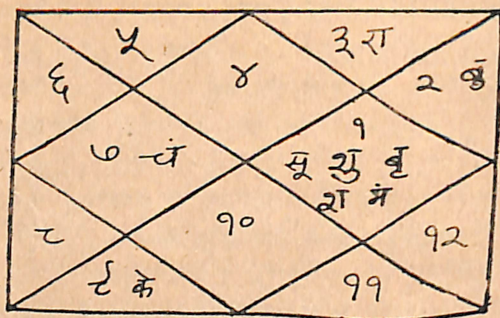 ५ ३ रा
६ ४ २ बु
१
७ चं सू शु बृ
श मं
८ १० १२
९ के ११